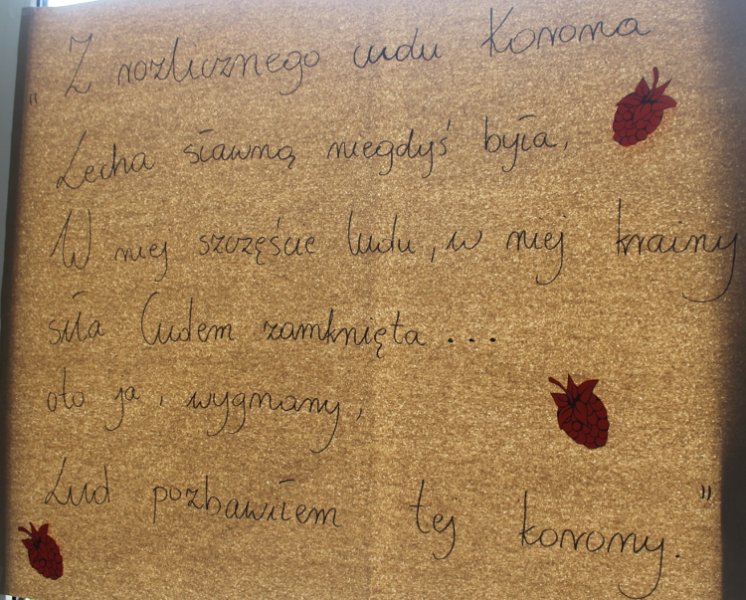 „Z rozlicznego cudu Korona
Lecha sławną niegdyś była,
W niej szczęście ludu, w niej krainy
siła Cudem zamknięta...
oto ja, wygnany,
Lud pozbawiłem tej korony."